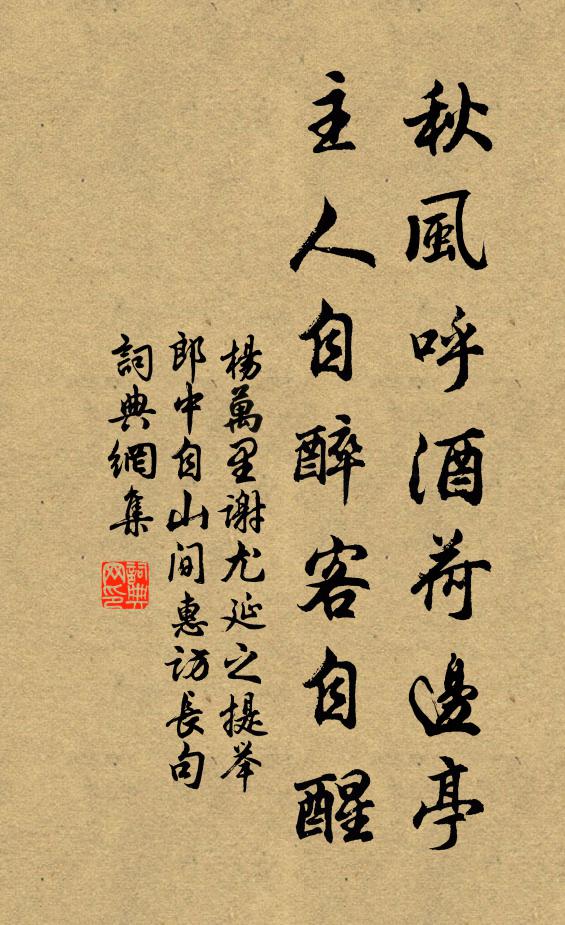 秋風呼酒荷邊亭
主人自醉客自醒
楊萬里謝尤延之提举
郎中自山间惠訪長句
詞典網集
詞典网印